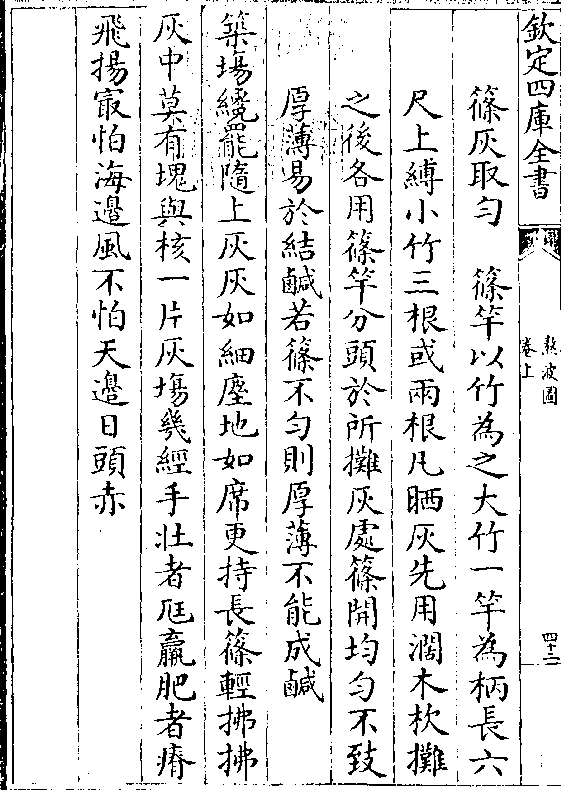 欽定四庫全書
熬波圖
卷上
四十三
篠灰取勻　篠竿以竹為之大竹一竿為柄長六
尺上縛小竹三根或兩根凡晒灰先用濶木杴攤
之後各用篠竿分頭於所攤灰處篠開均勻不致
厚薄易於結鹹若篠不勻則厚薄不能成鹹
築場纔罷隨上灰灰如細塵地如席更持長篠輕拂拂
灰中莫有塊與核一片灰塲幾經手壯者尫羸肥者瘠
飛揚㝡怕海邉風不怕天邉日頭赤